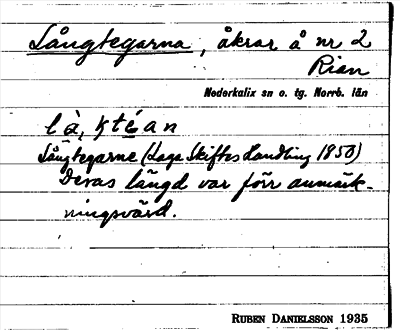 Långtegarna, åkrar å nr 2
Rian
Nederkalix sn o. tg. Norrb. län
Långtegarne (Laga Skiftes Handling 1850)
Deras längd var förr anmärk-
ningsvärd.
RUBEN DANIELSSON 1935